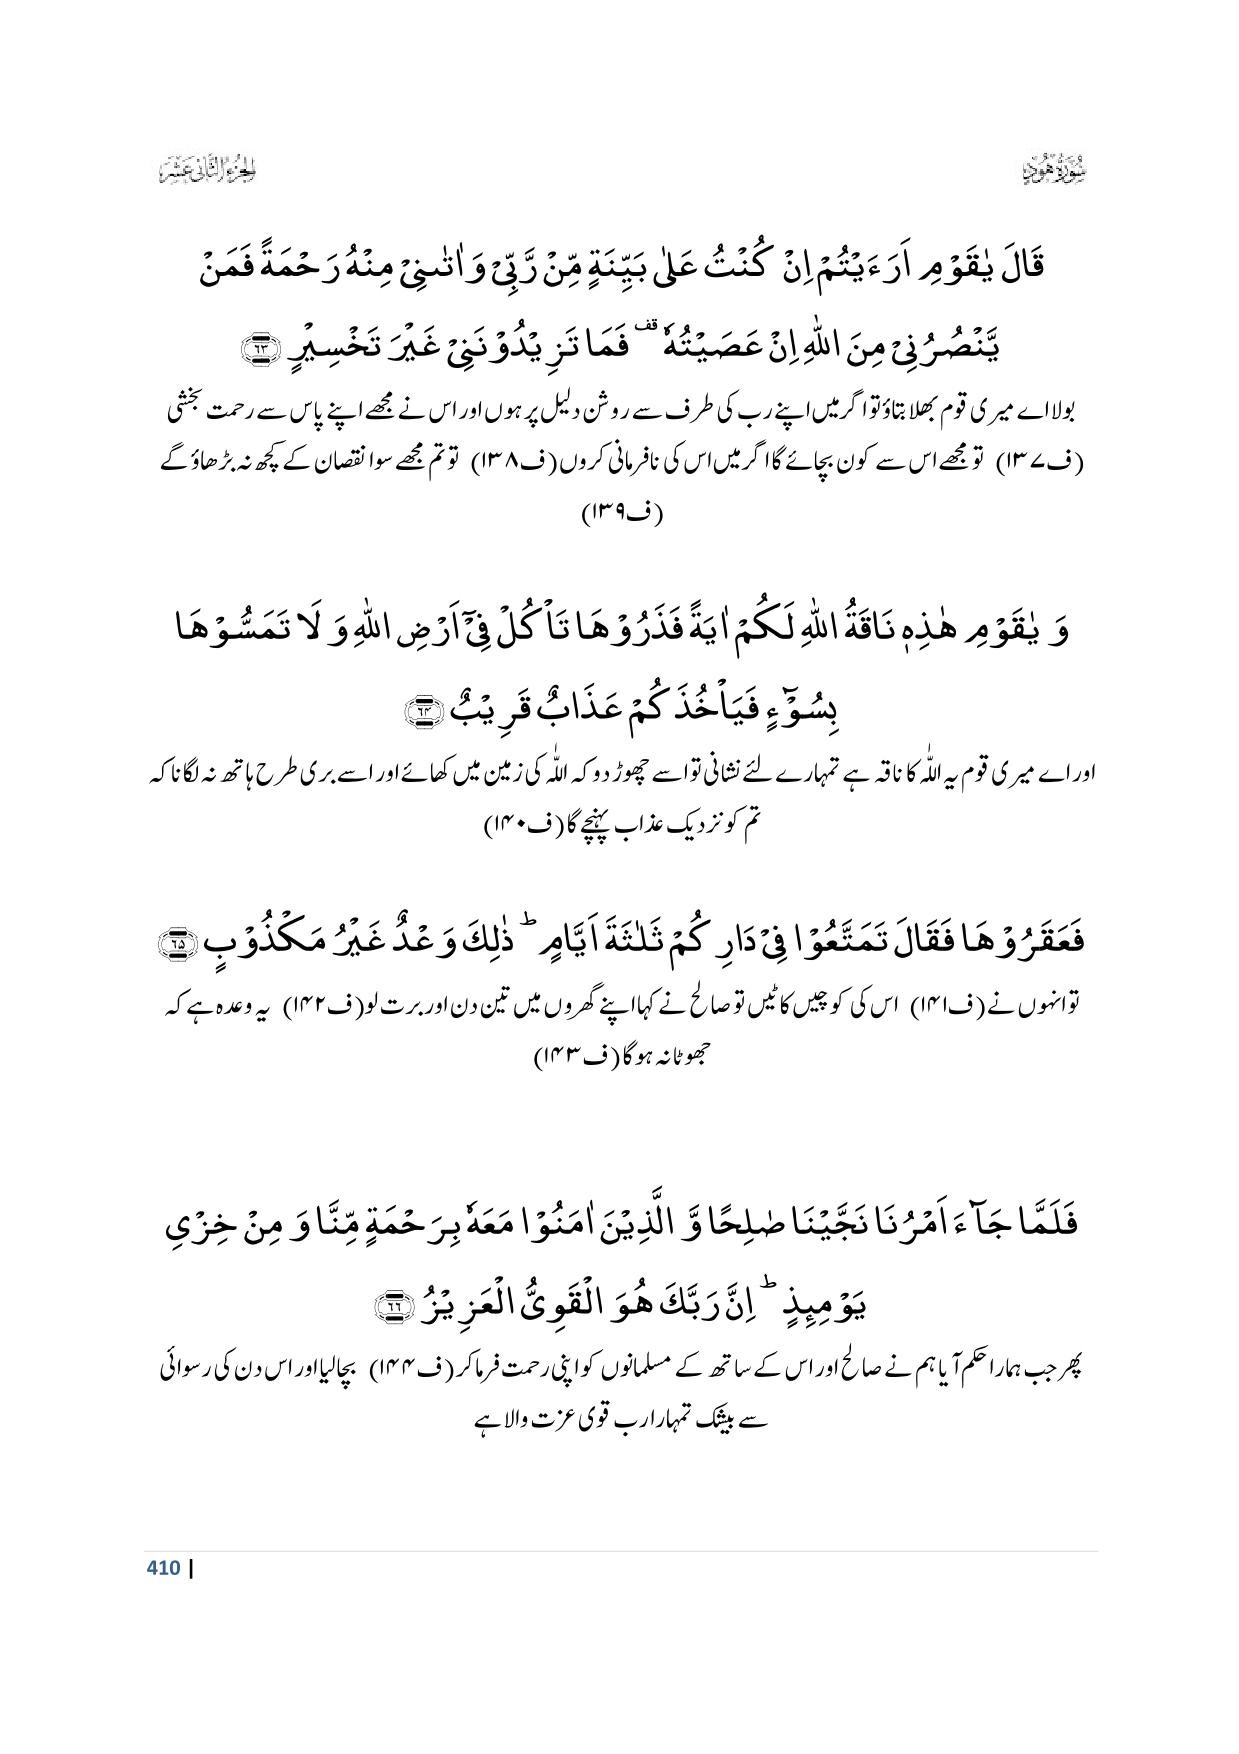 سُوْرَةُ هُوْدٍ
الجزء الثانی عشر
قَالَ یٰقَوْمِ اَرَءَیْتُمْ اِنْ كُنْتُ عَلٰى بَیِّنَةٍ مِّنْ رَّبِّیْ وَ اٰتٰىنِیْ مِنْهُ رَحْمَةً فَمَنْ
یَّنْصُرُنِیْ مِنَ اللّٰهِ اِنْ عَصَیْتُهٗ ۫ قف فَمَا تَزِیْدُوْنَنِیْ غَیْرَ تَخْسِیْرٍ ﴿٦٣﴾
بولا اے میری قوم بھلا بتاؤ تو اگر میں اپنے رب کی طرف سے روشن دلیل پر ہوں اور اس نے مجھے اپنے پاس سے رحمت بخشی
(ف۱۳۷) تو مجھے اس سے کون بچائے گا اگر میں اس کی نافرمانی کروں (ف۱۳۸) تو تم مجھے سوا نقصان کے کچھ نہ بڑھاؤ گے
(ف۱۳۹)
وَ یٰقَوْمِ هٰذِهٖ نَاقَةُ اللّٰهِ لَكُمْ اٰیَةً فَذَرُوْهَا تَاْكُلْ فِیْۤ اَرْضِ اللّٰهِ وَ لَا تَمَسُّوْهَا
بِسُوْٓءٍ فَیَاْخُذَكُمْ عَذَابٌ قَرِیْبٌ ﴿٦٤﴾
اور اے میری قوم یہ اللّٰہ کا ناقہ ہے تمہارے لئے نشانی تو اسے چھوڑ دو کہ اللّٰہ کی زمین میں کھائے اور اسے بری طرح ہاتھ نہ لگانا کہ
تم کو نزدیک عذاب پہنچے گا (ف۱۴۰)
فَعَقَرُوْهَا فَقَالَ تَمَتَّعُوْا فِیْ دَارِكُمْ ثَلٰثَةَ اَیَّامٍ ؕ ذٰلِكَ وَعْدٌ غَیْرُ مَكْذُوْبٍ ﴿٦٥﴾
تو انہوں نے (ف۱۴۱) اس کی کوچیں کاٹیں تو صالح نے کہا اپنے گھروں میں تین دن اور برت لو (ف۱۴۲) یہ وعدہ ہے کہ
جھوٹا نہ ہوگا (ف۱۴۳)
فَلَمَّا جَآءَ اَمْرُنَا نَجَّیْنَا صٰلِحًا وَّ الَّذِیْنَ اٰمَنُوْا مَعَهٗ بِرَحْمَةٍ مِّنَّا وَ مِنْ خِزْیِ
یَوْمِىِٕذٍ ؕ اِنَّ رَبَّكَ هُوَ الْقَوِیُّ الْعَزِیْزُ ﴿٦٦﴾
پھر جب ہمارا حکم آیا ہم نے صالح اور اس کے ساتھ کے مسلمانوں کو اپنی رحمت فرما کر (ف۱۴۴) بچالیا اور اس دن کی رسوائی
سے بیشک تمہارا رب قوی عزت والا ہے
410 |